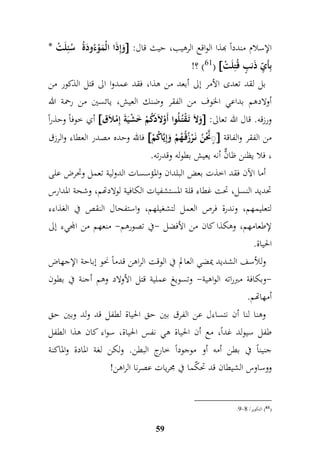 الإسلام مندداً بهذا الواقع الرهيب، حيث قال: [وَإِذَا الْمَوْءُودَةُ سُئِلَتْ *
بِأَيِّ ذَنبٍ قُتِلَتْ] (61) ؟!
بل لقد تعدى الأمر إلى أبعد من هذا، فقد عمدوا الى قتل الذكور من
أولادهم بداعي الخوف من الفقر وضنك العيش، يائسين من رحمة الله
ورزقه. قال الله تعالى: [وَلَا تَقْتُلُوا أَوْلَادَكُمْ خَشْيَةَ إِمْلَاقٍ] أي خوفاً وحذراً
من الفقر والفاقة [نَّحْنُ نَرْزُقُهُمْ وَإِيَّاكُم] فالله وحده مصدر العطاء والرزق
، فلا يظنن ظانٌّ أنه يعيش بطوله وقدرته.
أما الآن فقد اخذت بعض البلدان والمؤسسات الدولية تعمل وتحرض على
تحديد النسل، تحت غطاء قلة المستشفيات الكافية لولادتهم، وشحة المدارس
لتعليمهم، وندرة فرص العمل لتشغيلهم، واستفحال النقص في الغذاء،
لإطعامهم، وهكذا كان من الأفضل -في تصورهم- منعهم من المجيء إلى
الحياة.
وللأسف الشديد يمضي العالم في الوقت الراهن قدماً نحو إباحة الإجهاض
-وبكافة مبرراته الواهية- وتسويغ عملية قتل الأولاد وهم أجنة في بطون
أمهاتهم.
وهنا لنا أن نتساءل عن الفرق بين حق الحياة لطفل قد ولد وبين حق
طفل سيولد غداً، مع أن الحياة هي نفس الحياة، سواء كان هذا الطفل
جنيناً في بطن أمه أو موجوداً خارج البطن. ولكن لغة المادة والماكنة
ووساوس الشيطان قد تحكّما في مجريات عصرنا الراهن!
(61) التكوير/ 8-9.
59